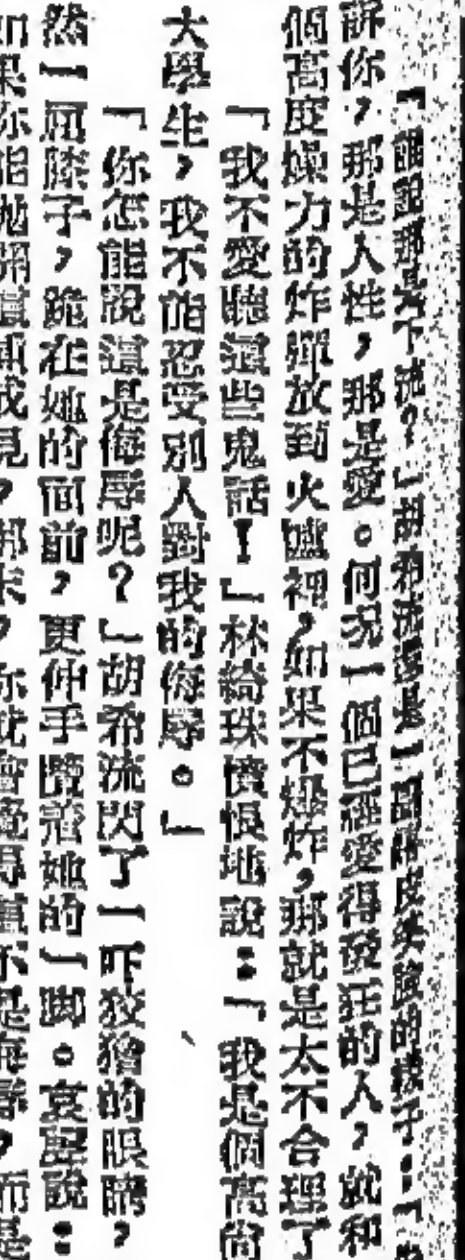 「誰說那是下流？」胡希流還是一副嘻皮笑臉的樣子：「
訴你，那是人性，那是愛。何況一個已經愛得發狂的人，就和
個高度爆力的炸彈放到火爐裡，如果不爆炸，那就是太不合理了
「我不愛聽這些鬼話！」林綺珠憤恨地說：「我是個高尚
大學生，我不能忍受別人對我的侮辱。」
「你怎能說這是侮辱呢？」胡希流閃了一吓狡猾的眼睛，
然一屈膝子，跪在她的面前，更伸手攬着她的一脚。哀歸說：
如果你能拋開這種成見，那末，你就會覺得這不是侮辱，而是